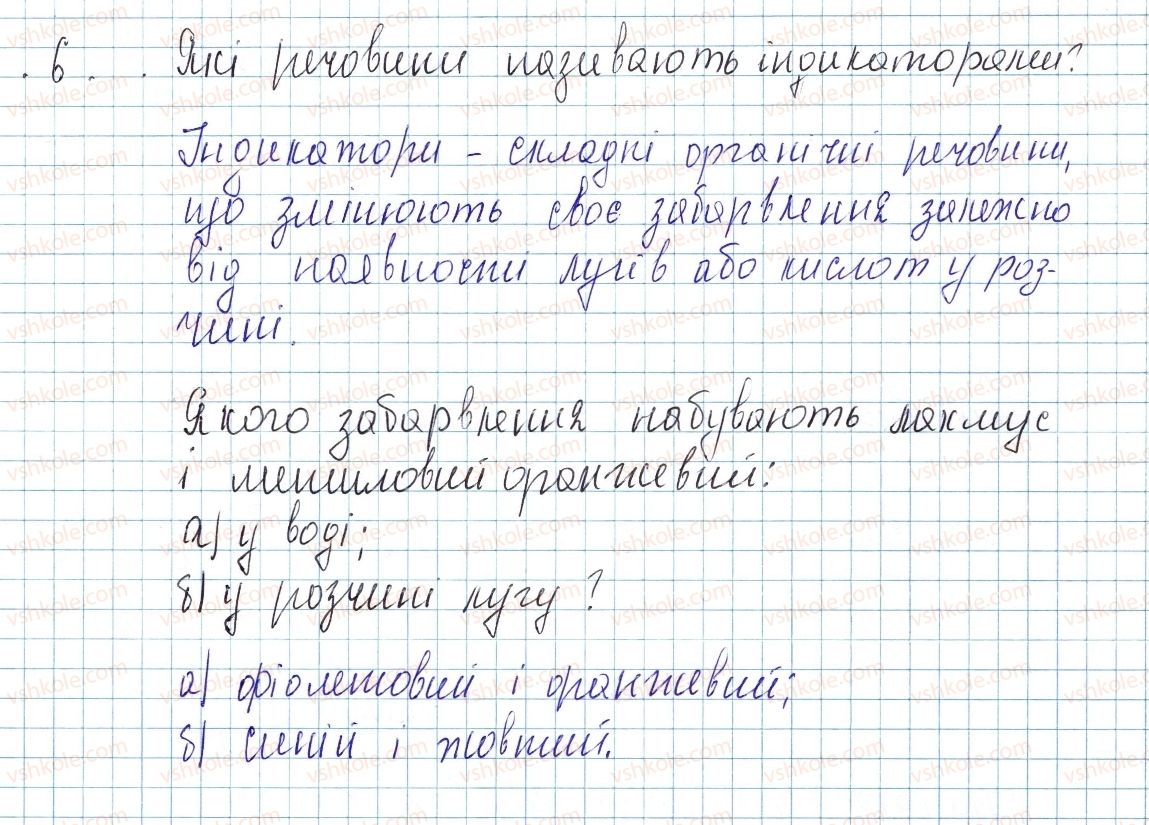 6. Які речовини називають індикаторами?
Індикатори - складні органічні речовини,
що змінюють своє забарвлення залежно
від наявності лугів або кислот у роз-
чині.
Якого забарвлення набувають лакмус
і метиловий оранжевий:
а) у воді;
б) у розчині лугу?
а) фіолетовий і оранжевий;
б) синій і жовтий.